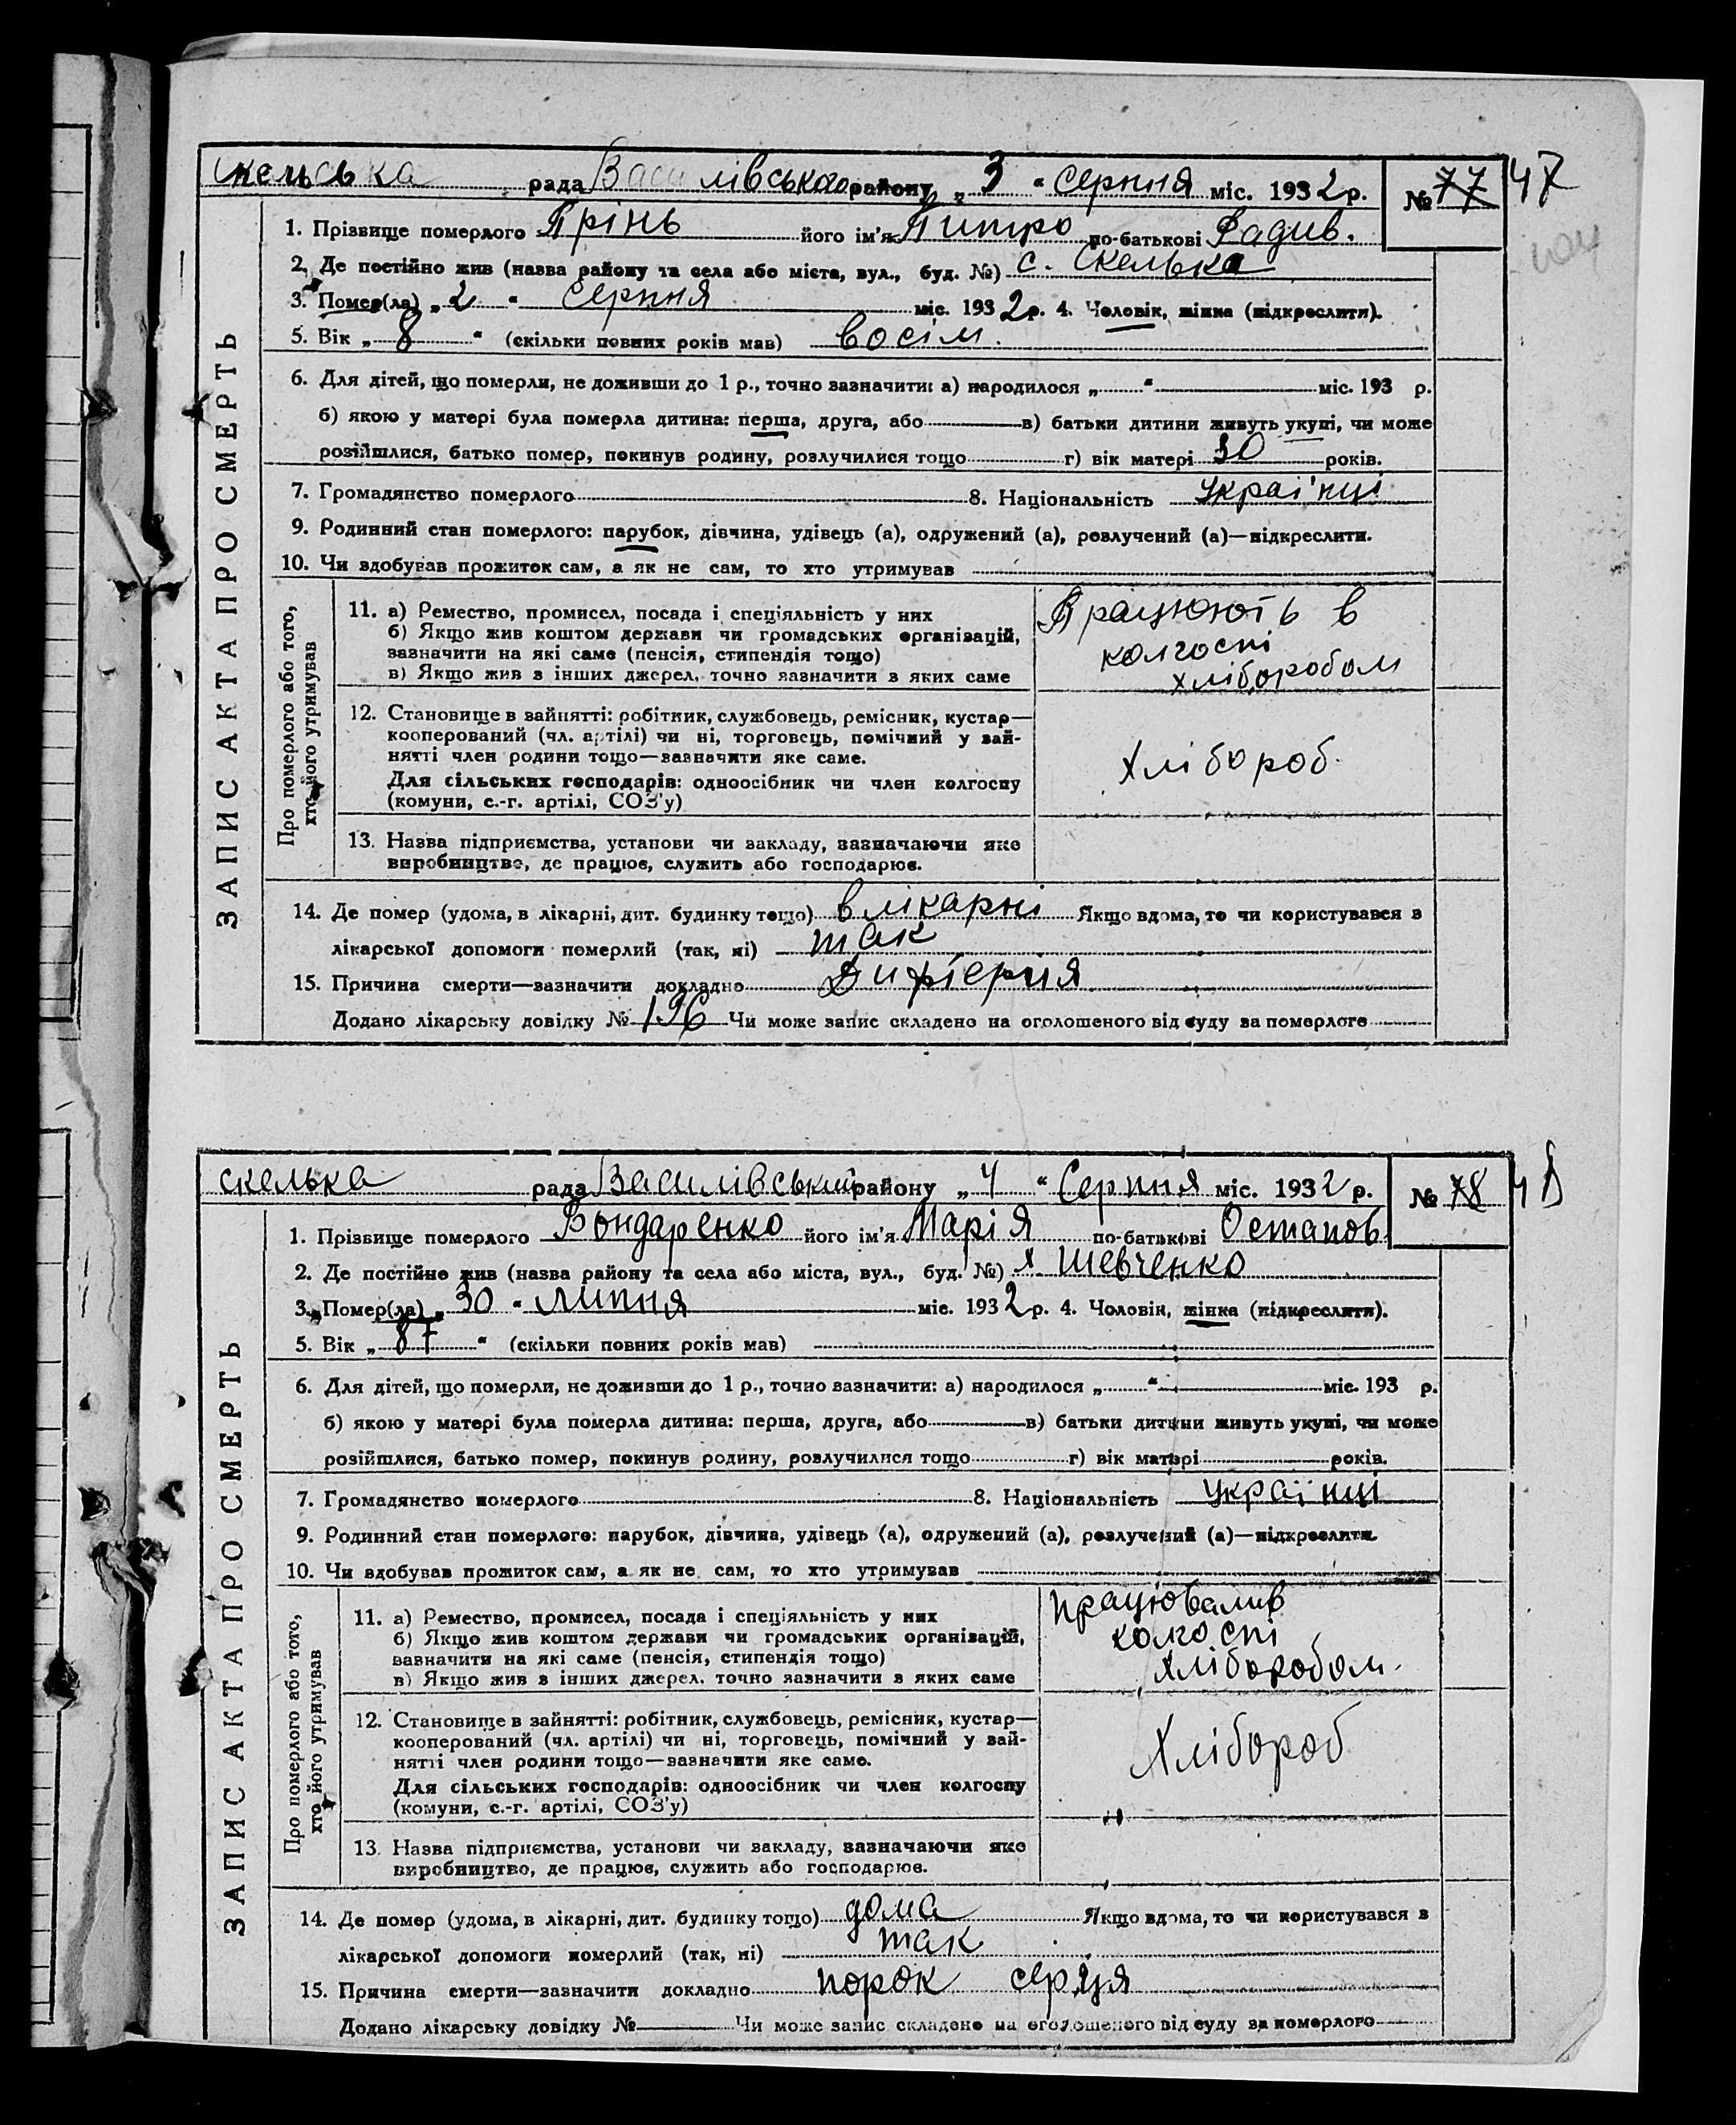 Скельська рада Василівського району „ 3 “ серпня міс. 1932 р. № 77 47
1. Прізвище померлого Грінь його ім'я Питро по-батькові Фадив.
2. Де постійно жив (назва району та села або міста, вул., буд. №) с. Скелька
3. Помер(ла) „ 2 “ серпня міс. 1932 р. 4. Чоловік, жінка (підкреслити).
5. Вік „ 8 “ (скільки повних років мав) восім.
6. Для дітей, що померли, не доживши до 1 р., точно зазначити: а) народилося „ “ міс. 193 р.
б) якою у матері була померла дитина: перша, друга, або в) батьки дитини живуть укупі, чи може
розійшлися, батько помер, покинув родину, розлучилися тощо г) вік матері 30 років.
7. Громадянство померлого 8. Національність Украі'нці
9. Родинний стан померлого: парубок, дівчина, удівець (а), одружений (а), розлучений (а)—підкреслити.
10. Чи здобував прожиток сам, а як не сам, то хто утримував
ЗАПИС АКТА ПРО СМЕРТЬ
Про померлого або того,
хто його утримував
11. а) Ремество, промисел, посада і спеціяльність у них
б) Якщо жив коштом держави чи громадських організацій,
зазначити на які саме (пенсія, стипендія тощо)
в) Якщо жив з інших джерел, точно зазначити з яких саме
Працюють в
колгоспі
хліборобом
12. Становище в зайнятті: робітник, службовець, ремісник, кустар—
кооперований (чл. артілі) чи ні, торговець, помічний у зай-
нятті член родини тощо—зазначити яке саме.
Для сільських господарів: одноосібник чи член колгоспу
(комуни, с.-г. артілі, СОЗ'у)
Хлібороб.
13. Назва підприємства, установи чи закладу, зазначаючи яке
виробництво, де працює, служить або господарює.
14. Де помер (удома, в лікарні, дит. будинку тощо) в лікарні Якщо вдома, то чи користувався з
лікарської допомоги померлий (так, ні) так
15. Причина смерти—зазначити докладно Дифтерия
Додано лікарську довідку № 196 Чи може запис складено на оголошеного від суду за померлого
скелька рада Василівський району „ 4 “ Серпня міс. 1932 р. № 78 48
1. Прізвище померлого Бондаренко його ім'я Марія по-батькові Остапов
2. Де постійно жив (назва району та села або міста, вул., буд. №) х Шевченко
3. Помер(ла) „ 30 “ липня міс. 1932 р. 4. Чоловік, жінка (підкреслити).
5. Вік „ 87 “ (скільки повних років мав)
6. Для дітей, що померли, не доживши до 1 р., точно зазначити: а) народилося „ “ міс. 193 р.
б) якою у матері була померла дитина: перша, друга, або в) батьки дитини живуть укупі, чи може
розійшлися, батько помер, покинув родину, розлучилися тощо г) вік матері років.
7. Громадянство померлого 8. Національність Українці
9. Родинний стан померлого: парубок, дівчина, удівець (а), одружений (а), розлучений (а)—підкреслити.
10. Чи здобував прожиток сам, а як не сам, то хто утримував
ЗАПИС АКТА ПРО СМЕРТЬ
Про померлого або того,
хто його утримував
11. а) Ремество, промисел, посада і спеціяльність у них
б) Якщо жив коштом держави чи громадських організацій,
зазначити на які саме (пенсія, стипендія тощо)
в) Якщо жив з інших джерел, точно зазначити з яких саме
працювалив
колгоспі
хліборобом.
12. Становище в зайнятті: робітник, службовець, ремісник, кустар—
кооперований (чл. артілі) чи ні, торговець, помічний у зай-
нятті член родини тощо—зазначити яке саме.
Для сільських господарів: одноосібник чи член колгоспу
(комуни, с.-г. артілі, СОЗ'у)
Хлібороб
13. Назва підприємства, установи чи закладу, зазначаючи яке
виробництво, де працює, служить або господарює.
14. Де помер (удома, в лікарні, дит. будинку тощо) дома Якщо вдома, то чи користувався з
лікарської допомоги померлий (так, ні) так
15. Причина смерти—зазначити докладно порок серця
Додано лікарську довідку № Чи може запис складено на оголошеного від суду за померлого